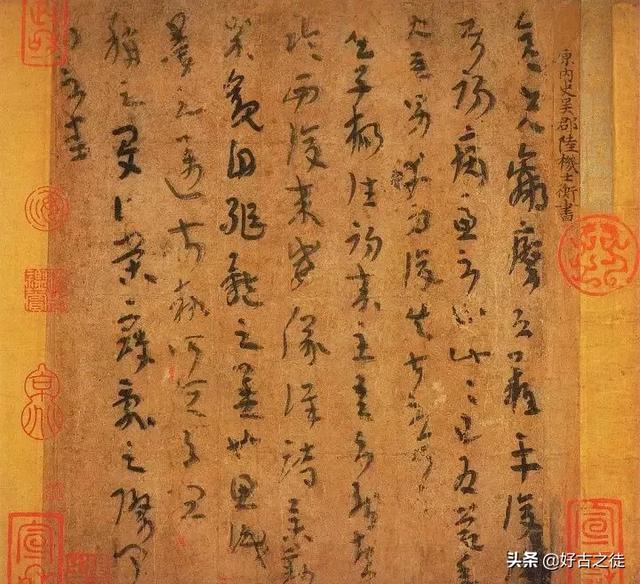 晉內史吳郡陸機士衡書
彦先羸瘵恐難平復
往屬初病慮不止此此已為慶承
使唯男幸為復失前憂耳
吳子楊往初來主吾不能盡
臨西復來威儀詳跱舉動
成觀自軀體之美也思識
量之邁前執所恒有宜
稱之夏伯榮寇亂之際聞
問不悉
头条 @好古之徒